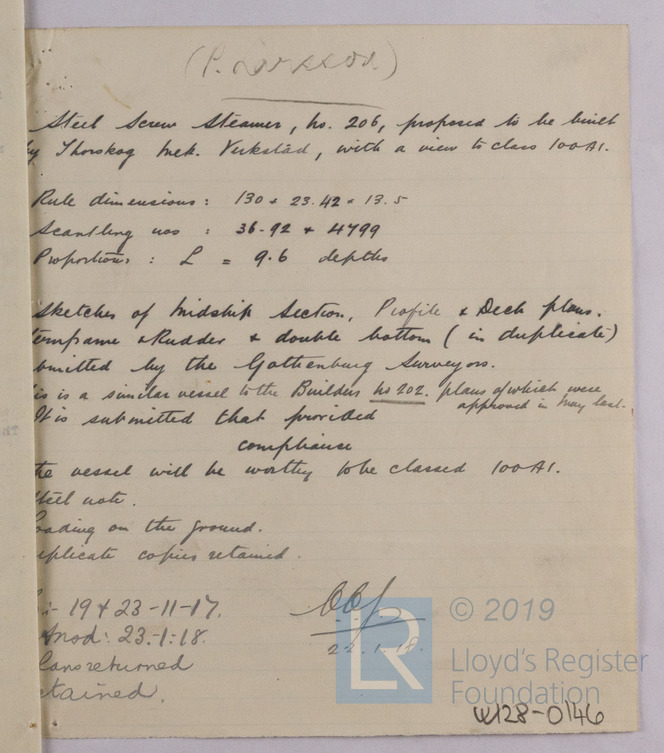 (P. Larsson.)
Steel Screw Steamer, No. 206, proposed to be built
by Thorskog Mek. Verkstad, with a view to class 100A1.
Rule dimensions: 130 x 23.42 x 13.5
Scantling nos : 36.92 x 4799
Proportions : L = 9.6 depths
Sketches of Midship Section, Profile & Deck plans.
ternframe & Rudder & double bottom (in duplicate)
bmitted by the Gothenburg Surveyors.
his is a similar vessel to the Builders No 202. plans of which were
approved in May last.
It is submitted that provided
compliance
the vessel will be worthy to be classed 100A1.
Steel note.
Loading on the ground.
uplicate copies retained.
19 & 23-11-17.
23.1.18.
Plans returned
etained.
22.1.18.
LR
© 2019
Lloyd's Register
Foundation
W128-0146